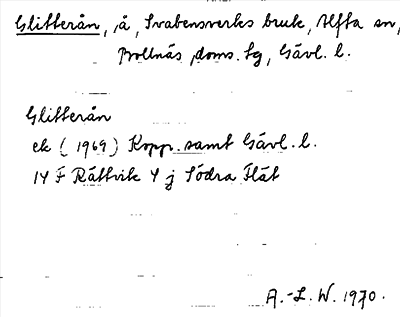 Glitterån, å, Svabensverks bruk, Alfta sn,
Bollnäs doms. tg, Gävl. l.
Glitterån
ek (1969) Kopp. samt Gävl. l.
14 F Rättvik 4 j Södra Flät
A.-L. W. 1970.